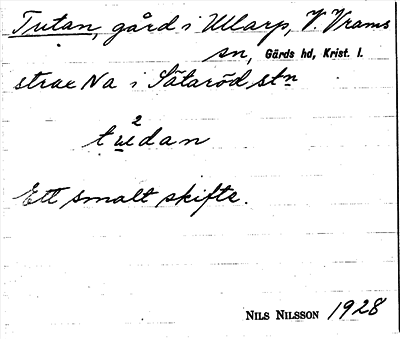 Tutan, gård i Ullarp, V. Vrams
sn, Gärds hd, Krist. l.
strax Na i Sätaröd stn
2
tωdan
Ett smalt skifte.
NILS NILSSON 1928